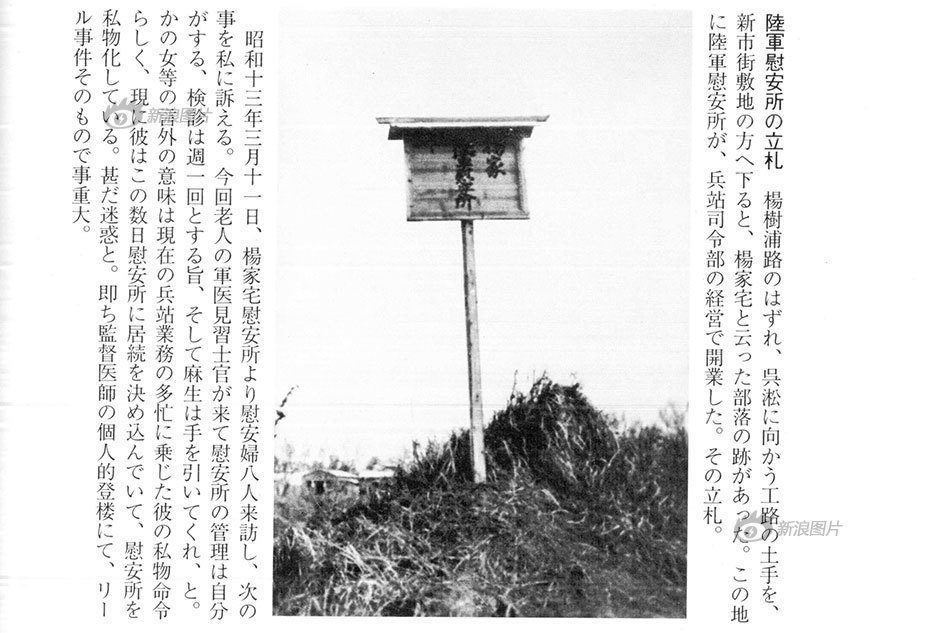 陸軍慰安所の立札　楊樹浦路のはずれ、呉淞に向かう工路の土手を、
新市街敷地の方へ下ると、楊家宅と云った部落の跡があった。この地
に陸軍慰安所が、兵站司令部の経営で開業した。その立札。
楊家
慰安所
昭和十三年三月十一日、楊家宅慰安所より慰安婦八人来訪し、次の
事を私に訴える。今回老人の軍医見習士官が来て慰安所の管理は自分
がする、検診は週一回とする旨、そして麻生は手を引いてくれ、と。
かの女等の言外の意味は現在の兵站業務の多忙に乗じた彼の私物命令
らしく、現に彼はこの数日慰安所に居続を決め込んでいて、慰安所を
私物化している。甚だ迷惑と。即ち監督医師の個人的登楼にて、リー
ル事件そのもので事重大。
新浪图片
新浪图片